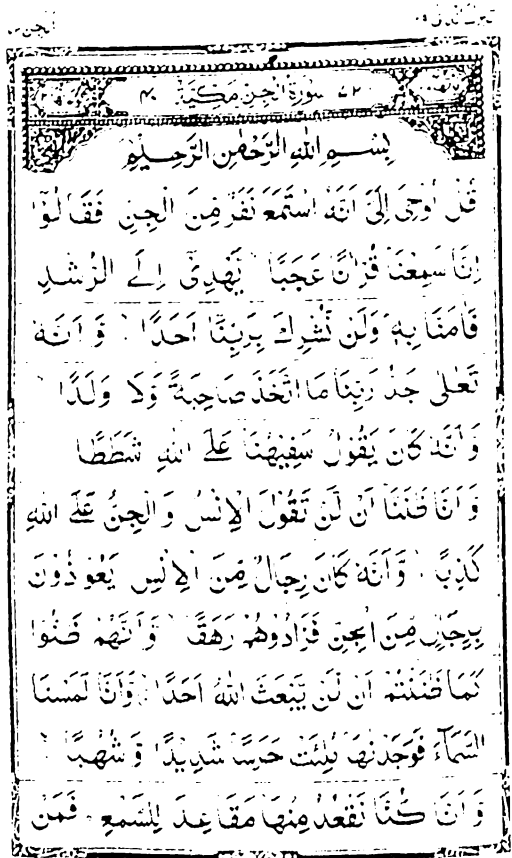 تبارك الذى ٢٩
الجن ٧٢
٧٢ سورة الجن مكية ٤٠
بسم الله الرحمن الرحيم
قُلْ اُوْحِىَ اِلَىَّ اَنَّهُ اسْتَمَعَ نَفَرٌ مِّنَ الْجِنِّ فَقَالُوْٓا
اِنَّا سَمِعْنَا قُرْاٰنًا عَجَبًا يَّهْدِىْٓ اِلَى الرُّشْدِ
فَاٰمَنَّا بِهٖ وَلَنْ نُّشْرِكَ بِرَبِّنَآ اَحَدًا وَّاَنَّهٗ
تَعٰلٰى جَدُّ رَبِّنَا مَا اتَّخَذَ صَاحِبَةً وَّلَا وَلَدًا
وَّاَنَّهٗ كَانَ يَقُوْلُ سَفِيْهُنَا عَلَى اللّٰهِ شَطَطًا
وَّاَنَّا ظَنَنَّآ اَنْ لَّنْ تَقُوْلَ الْاِنْسُ وَالْجِنُّ عَلَى اللّٰهِ
كَذِبًا وَّاَنَّهٗ كَانَ رِجَالٌ مِّنَ الْاِنْسِ يَعُوْذُوْنَ
بِرِجَالٍ مِّنَ الْجِنِّ فَزَادُوْهُمْ رَهَقًا وَّاَنَّهُمْ ظَنُّوْا
كَمَا ظَنَنْتُمْ اَنْ لَّنْ يَّبْعَثَ اللّٰهُ اَحَدًا وَّاَنَّا لَمَسْنَا
السَّمَآءَ فَوَجَدْنٰهَا مُلِئَتْ حَرَسًا شَدِيْدًا وَّشُهُبًا
وَّاَنَّا كُنَّا نَقْعُدُ مِنْهَا مَقَاعِدَ لِلسَّمْعِ فَمَنْ